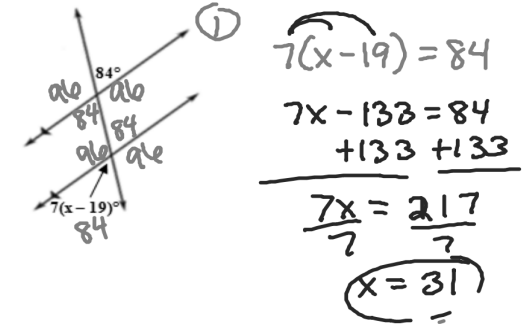 1
84°
96 96
84
84
96 96
7(x – 19)°
84
7(x – 19) = 84
7x – 133 = 84
+133 +133
7x = 217
7 7
x = 31